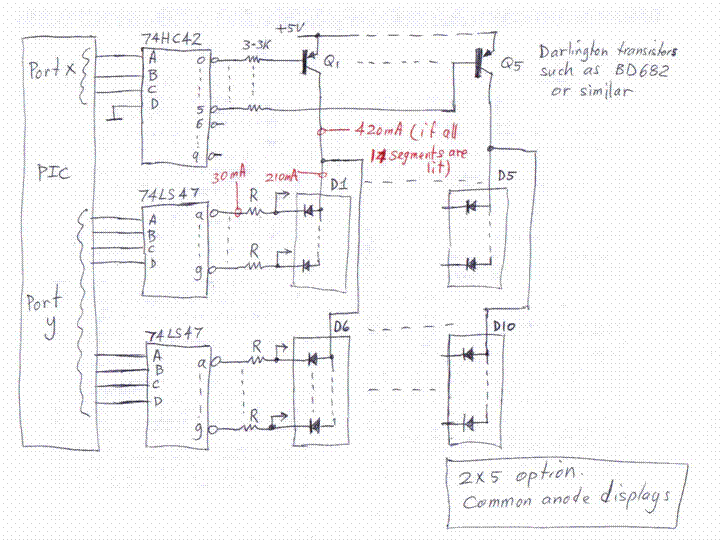 74HC42
+5V
3-3K
Q1
Q5
Darlington transistors
such as BD682
or similar
Port x
A
B
C
D
0
5
6
9
PIC
420mA (if all
14 segments are
lit)
30mA
210mA
D1
D5
74LS47
A
B
C
D
a
g
R
R
Port
y
74LS47
A
B
C
D
a
g
R
R
D6
D10
2x5 option.
Common anode displays